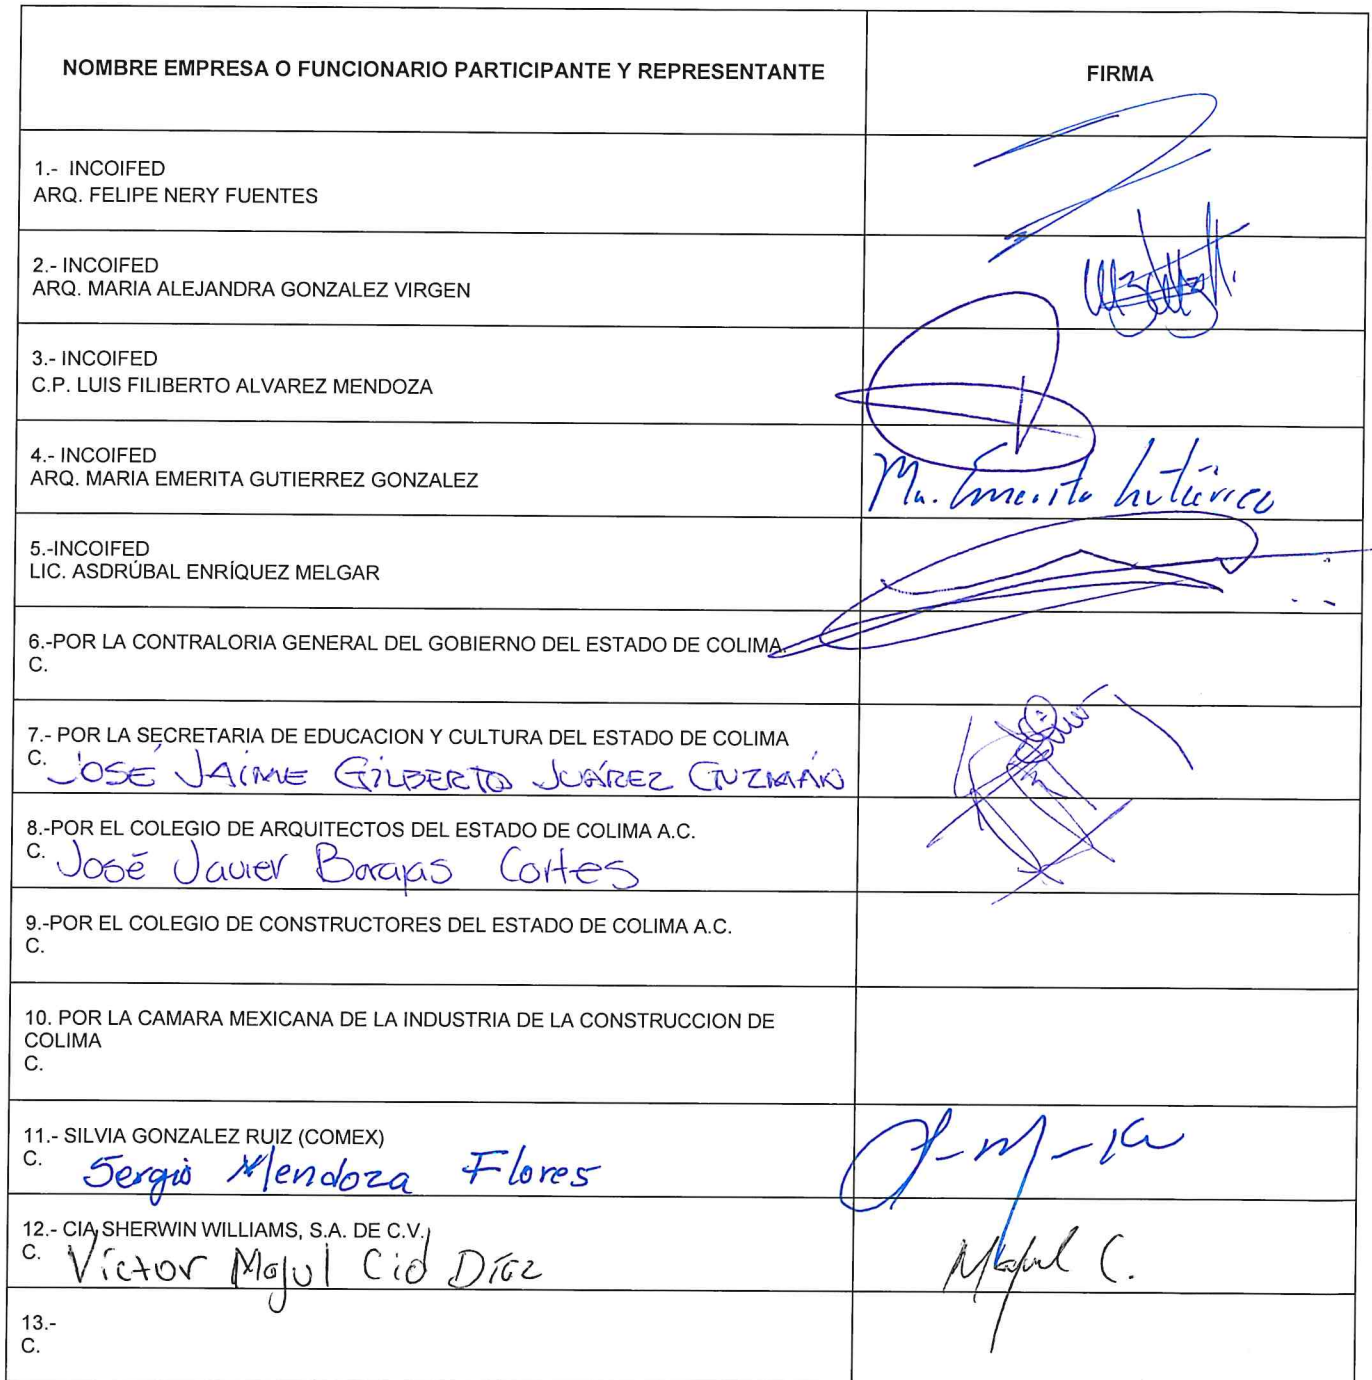 NOMBRE EMPRESA O FUNCIONARIO PARTICIPANTE Y REPRESENTANTE
FIRMA
1.- INCOIFED
ARQ. FELIPE NERY FUENTES
2.- INCOIFED
ARQ. MARIA ALEJANDRA GONZALEZ VIRGEN
3.- INCOIFED
C.P. LUIS FILIBERTO ALVAREZ MENDOZA
4.- INCOIFED
ARQ. MARIA EMERITA GUTIERREZ GONZALEZ
Ma. Emerita Gutiérrez
5.-INCOIFED
LIC. ASDRÚBAL ENRÍQUEZ MELGAR
6.-POR LA CONTRALORIA GENERAL DEL GOBIERNO DEL ESTADO DE COLIMA.
C.
7.- POR LA SECRETARIA DE EDUCACION Y CULTURA DEL ESTADO DE COLIMA
C. JOSÉ JAIME GILBERTO JUÁREZ GUZMÁN
8.-POR EL COLEGIO DE ARQUITECTOS DEL ESTADO DE COLIMA A.C.
C. José Javier Barajas Cortes
9.-POR EL COLEGIO DE CONSTRUCTORES DEL ESTADO DE COLIMA A.C.
C.
10. POR LA CAMARA MEXICANA DE LA INDUSTRIA DE LA CONSTRUCCION DE
COLIMA
C.
11.- SILVIA GONZALEZ RUIZ (COMEX)
C. Sergio Mendoza Flores
12.- CIA SHERWIN WILLIAMS, S.A. DE C.V.
C. Víctor Majul Cid Díaz
Majul C.
13.-
C.